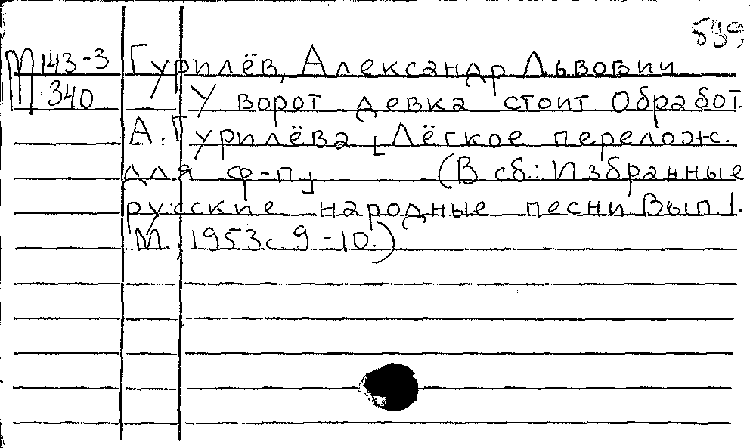 599
М 143-3 Гурилёв, Александр Львович
340 У ворот девка стоит Обработ.
А. Гурилёва [Лёгкое перелож.
для ф-п] (В сб.: Избранные
русские народные песни Вып. 1.
М. 1953 с. 9-10.)